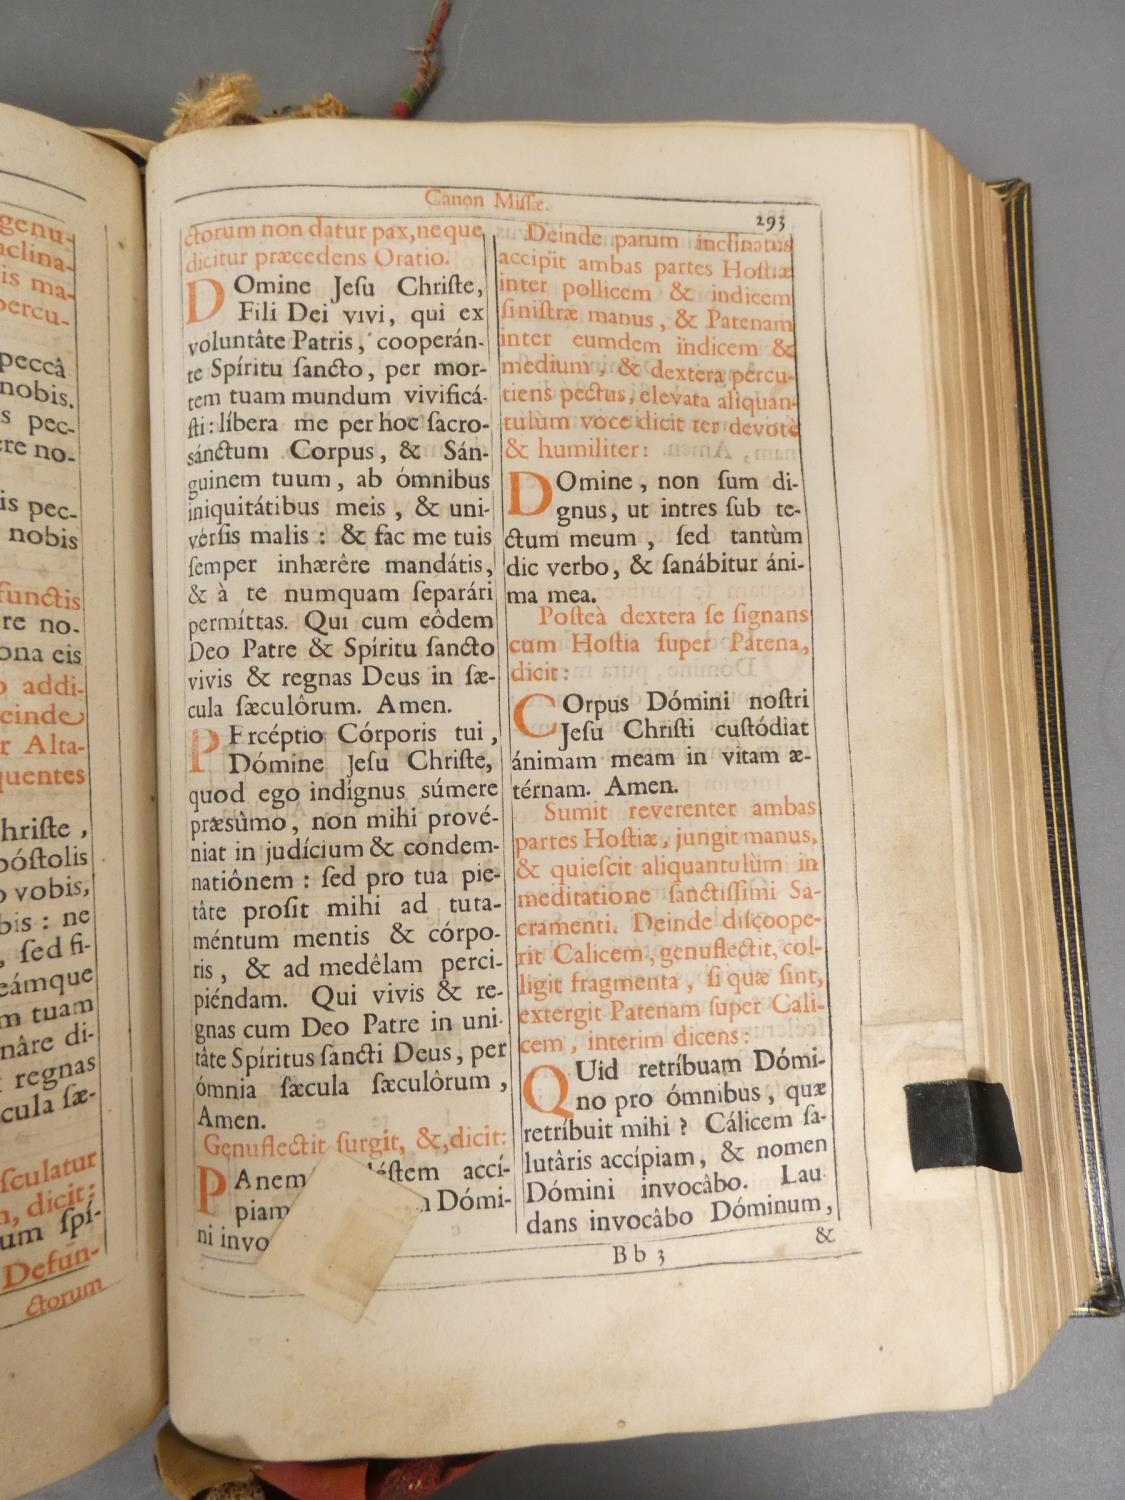 genu-
nclina-
is ma-
percu-
peccâ
nobis.
s pec-
re no-
is pec-
nobis
functis
re no-
ona eis
o addi-
einde
r Alta-
quentes
hriſte,
póſtolis
o vobis,
bis : ne
, ſed fi-
eámque
m tuam
nâre di-
regnas
cula ſæ-
ſculatur
n, dicit;
um ſpí-
Defun-
ctorum
Canon Miſſæ.
293
ctorum non datur pax, neque
dicitur præcedens Oratio.
DOmine Jeſu Chriſte,
Fili Dei vivi, qui ex
voluntâte Patris, cooperán-
te Spíritu ſancto, per mor-
tem tuam mundum vivificá-
ſti: líbera me per hoc ſacro-
sánctum Corpus, & Sán-
guinem tuum, ab ómnibus
iniquitátibus meis, & uni-
vérſis malis : & fac me tuis
ſemper inhærêre mandátis,
& à te numquam ſeparári
permíttas. Qui cum eôdem
Deo Patre & Spíritu ſancto
vivis & regnas Deus in ſæ-
cula ſæculôrum. Amen.
PErcéptio Córporis tui,
Dómine Jeſu Chriſte,
quod ego indígnus súmere
præsûmo, non mihi prové-
niat in judícium & condem-
natiônem : ſed pro tua pie-
tâte profit mihi ad tuta-
méntum mentis & córpo-
ris, & ad medêlam perci-
piéndam. Qui vivis & re-
gnas cum Deo Patre in uni-
tâte Spíritus ſancti Deus, per
ómnia ſæcula ſæculôrum,
Amen.
Genuflectit ſurgit, &, dicit:
PAnem léſtem accí-
piam Dómi-
ni invo
Deinde parum inclinatus
accipit ambas partes Hoſtiæ
inter pollicem & indicem
ſiniſtræ manus, & Patenam
inter eumdem indicem &
medium, & dextera percu-
tiens pectus, elevata aliquan-
tulùm voce dicit ter devotè
& humiliter:
DOmine, non ſum di-
gnus, ut intres ſub te-
ctum meum, ſed tantùm
dic verbo, & ſanábitur áni-
ma mea.
Poſteà dextera ſe ſignans
cum Hoſtia ſuper Patena,
dicit:
COrpus Dómini noſtri
Jeſu Chriſti cuſtódiat
ánimam meam in vitam æ-
térnam. Amen.
Sumit reverenter ambas
partes Hoſtiæ, jungit manus,
& quieſcit aliquantulùm in
meditatione ſanctiſſimi Sa-
cramenti. Deinde diſcoope-
rit Calicem, genuflectit, col-
ligit fragmenta, ſi quæ ſint,
extergit Patenam ſuper Cali-
cem, interim dicens:
QUid retríbuam Dómi-
no pro ómnibus, quæ
retríbuit mihi ? Cálicem ſa-
lutâris accípiam, & nomen
Dómini invocâbo. Lau
dans invocâbo Dóminum,
Bb 3
&